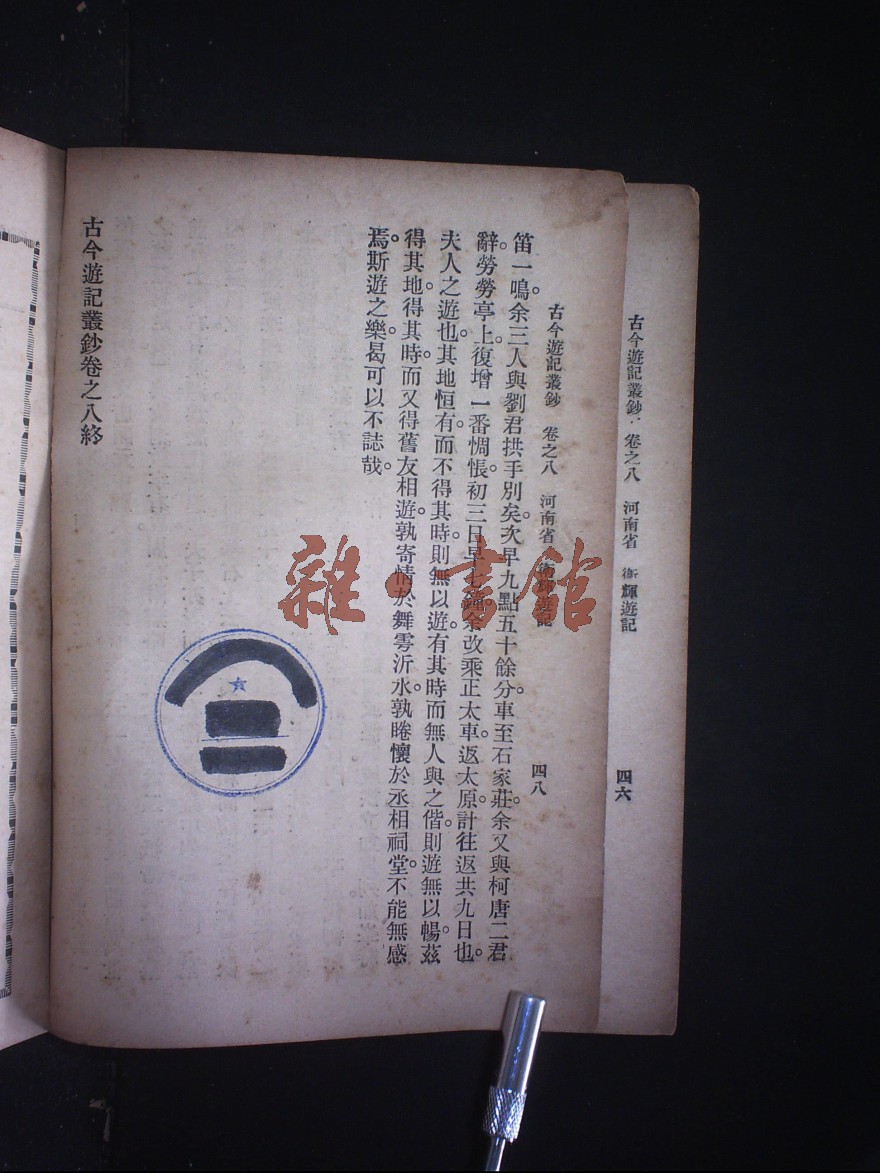 古今遊記叢鈔 卷之八 河南省 衞輝遊記 四六
古今遊記叢鈔 卷之八 河南省 衞輝遊記 四八
笛一鳴。余三人與劉君拱手別矣。次早九點五十餘分。車至石家莊。余又與柯唐二君
辭。勞勞亭上。復增一番惆悵。初三日早七鐘。余改乘正太車。返太原。計往返共九日也。
夫人之遊也。其地恒有。而不得其時。則無以遊。有其時而無人與之偕。則遊無以暢。茲
得其地。得其時。而又得舊友相遊。孰寄情於舞雩沂水。孰睠懷於丞相祠堂。不能無感
焉。斯遊之樂。曷可以不誌哉。
古今遊記叢鈔卷之八終
雜·書館